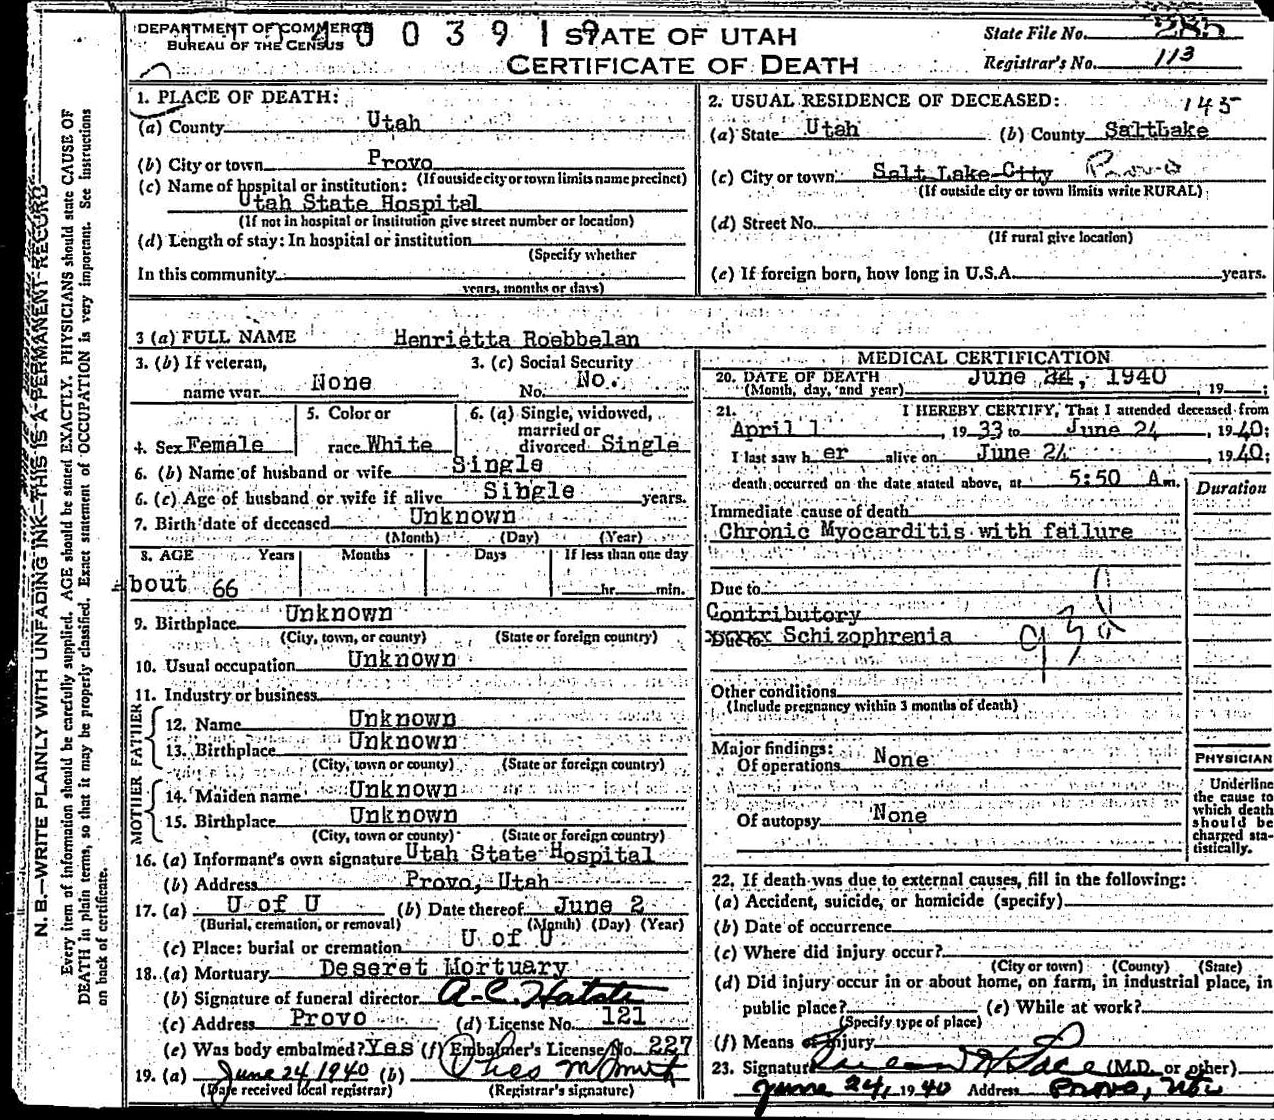 N. B.—WRITE PLAINLY WITH UNFADING INK—THIS IS A PERMANENT RECORD
Every item of information should be carefully supplied. AGE should be stated EXACTLY. PHYSICIANS should state CAUSE OF
DEATH in plain terms, so that it may be properly classified. Exact statement of OCCUPATION is very important. See Instructions
on back of certificate.
DEPARTMENT OF COMMERCE
BUREAU OF THE CENSUS
STATE OF UTAH
CERTIFICATE OF DEATH
State File No.
Registrar's No. 113
1. PLACE OF DEATH:
(a) County Utah
(b) City or town Provo
(If outside city or town limits name precinct)
(c) Name of hospital or institution:
Utah State Hospital
(If not in hospital or institution give street number or location)
(d) Length of stay: In hospital or institution
(Specify whether
In this community
years, months or days)
2. USUAL RESIDENCE OF DECEASED: 145
(a) State Utah (b) County SaltLake
(c) City or town Salt Lake City Provo
(If outside city or town limits write RURAL)
(d) Street No.
(If rural give location)
(e) If foreign born, how long in U.S.A. years.
3 (a) FULL NAME Henrietta Roebbelan
3. (b) If veteran, name war None
3. (c) Social Security No. No.
4. Sex Female
5. Color or race White
6. (a) Single, widowed, married or divorced Single
6. (b) Name of husband or wife Single
6. (c) Age of husband or wife if alive Sibgle years.
7. Birth date of deceased Unknown
(Month) (Day) (Year)
8. AGE Years Months Days If less than one day
bout 66 hr. min.
9. Birthplace Unknown
(City, town, or county) (State or foreign country)
10. Usual occupation Unknown
11. Industry or business
FATHER
12. Name Unknown
13. Birthplace Unknown
(City, town or county) (State or foreign country)
MOTHER
14. Maiden name Unknown
15. Birthplace Unknown
(City, town or county) (State or foreign country)
16. (a) Informant's own signature Utah State Hospital
(b) Address Provo, Utah
17. (a) U of U (b) Date thereof June 2
(Burial, cremation, or removal) (Month) (Day) (Year)
(c) Place: burial or cremation U of U
18. (a) Mortuary Deseret Mortuary
(b) Signature of funeral director A. C. Hatch
(c) Address Provo (d) License No. 121
(e) Was body embalmed? Yes (f) Embalmer's License No. 227
19. (a) June 24 1940 (b)
(Date received local registrar) (Registrar's signature)
MEDICAL CERTIFICATION
20. DATE OF DEATH June 24, 1940 19 ;
(Month, day, and year)
21. I HEREBY CERTIFY, That I attended deceased from
April 1, 1933 to June 24, 1940;
I last saw her alive on June 24, 1940;
death occurred on the date stated above, at 5:50 A m.
Duration
Immediate cause of death
Chronic Myocarditis with failure
Due to
Contributory
Due to Schizophrenia
Other conditions
(Include pregnancy within 3 months of death)
Major findings:
Of operations None
Of autopsy None
PHYSICIAN
Underline
the cause to
which death
should be
charged sta-
tistically.
22. If death was due to external causes, fill in the following:
(a) Accident, suicide, or homicide (specify)
(b) Date of occurrence
(c) Where did injury occur?
(City or town) (County) (State)
(d) Did injury occur in or about home, on farm, in industrial place, in
public place? (e) While at work?
(Specify type of place)
(f) Means of Injury
23. Signature (M.D. or other)
June 24, 1940 Address Provo, Ut.